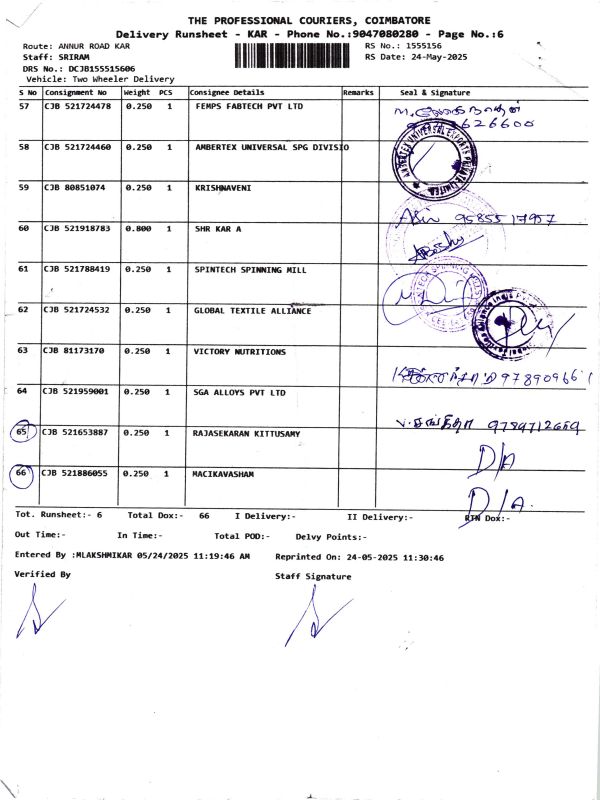 THE PROFESSIONAL COURIERS, COIMBATORE
Delivery Runsheet - KAR - Phone No.:9047080280 - Page No.:6
Route: ANNUR ROAD KAR RS No.: 1555156
Staff: SRIRAM RS Date: 24-May-2025
DRS No.: DCJB155515606
Vehicle: Two Wheeler Delivery
S No Consignment No Weight PCS Consignee Details Remarks Seal & Signature
57 CJB 521724478 0.250 1 FEMPS FABTECH PVT LTD
58 CJB 521724460 0.250 1 AMBERTEX UNIVERSAL SPG DIVISIO
59 CJB 80851074 0.250 1 KRISHNAVENI
9585517957
60 CJB 521918783 0.800 1 SHR KAR A
61 CJB 521788419 0.250 1 SPINTECH SPINNING MILL
62 CJB 521724532 0.250 1 GLOBAL TEXTILE ALLIANCE
63 CJB 81173170 0.250 1 VICTORY NUTRITIONS
64 CJB 521959001 0.250 1 SGA ALLOYS PVT LTD
65 CJB 521653887 0.250 1 RAJASEKARAN KITTUSAMY D/A
66 CJB 521886055 0.250 1 MACIKAVASHAM D/A.
Tot. Runsheet:- 6 Total Dox:- 66 I Delivery:- II Delivery:- RTN Dox:-
Out Time:- In Time:- Total POD:- Delvy Points:-
Entered By :MLAKSHMIKAR 05/24/2025 11:19:46 AM Reprinted On: 24-05-2025 11:30:46
Verified By Staff Signature